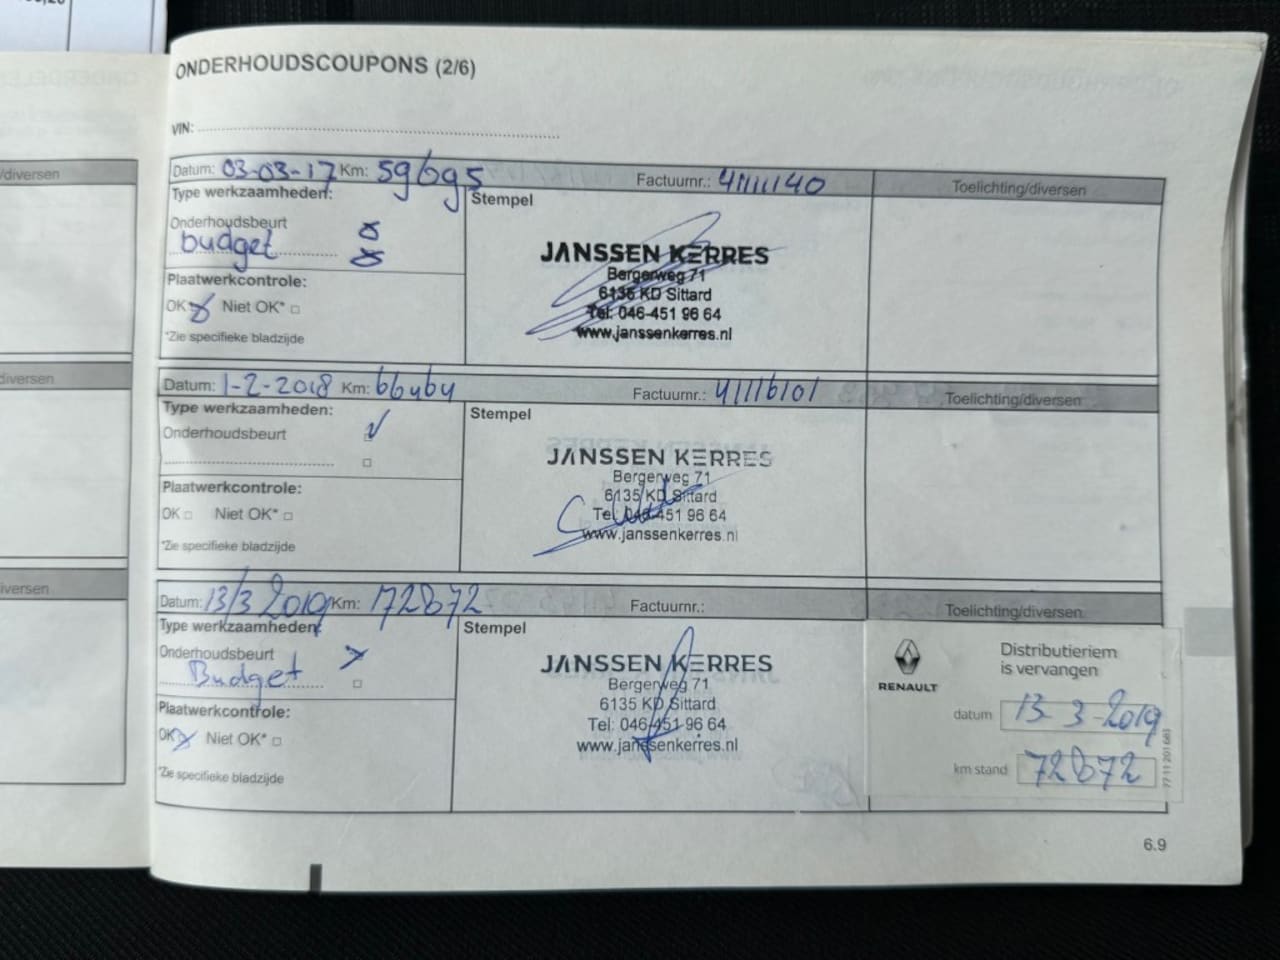 ONDERHOUDSCOUPONS (2/6)
VIN:
/diversen
Datum: 03-03-17 Km: 59695 Factuurnr.: 41111140 Toelichting/diversen
Type werkzaamheden: Stempel
Onderhoudsbeurt
budget
Plaatwerkcontrole:
OK Niet OK*
*Zie specifieke bladzijde
JANSSEN KERRES
Bergerweg 71
6135 KD Sittard
Tel: 046-451 96 64
www.janssenkerres.nl
diversen
Datum: 1-2-2018 Km: 66464 Factuurnr.: 41116101 Toelichting/diversen
Type werkzaamheden: Stempel
Onderhoudsbeurt
Plaatwerkcontrole:
OK Niet OK*
*Zie specifieke bladzijde
JANSSEN KERRES
Bergerweg 71
6135 KD Sittard
Tel: 046-451 96 64
www.janssenkerres.nl
iversen
Datum: 13/3 2019 Km: 72872 Factuurnr.: Toelichting/diversen
Type werkzaamheden: Stempel
Onderhoudsbeurt
Budget
Plaatwerkcontrole:
OK Niet OK*
*Zie specifieke bladzijde
JANSSEN KERRES
Bergerweg 71
6135 KD Sittard
Tel: 046-451 96 64
www.janssenkerres.nl
RENAULT
Distributieriem
is vervangen
datum 13-3-2019
km stand 72872
77 11 201 681
6.9